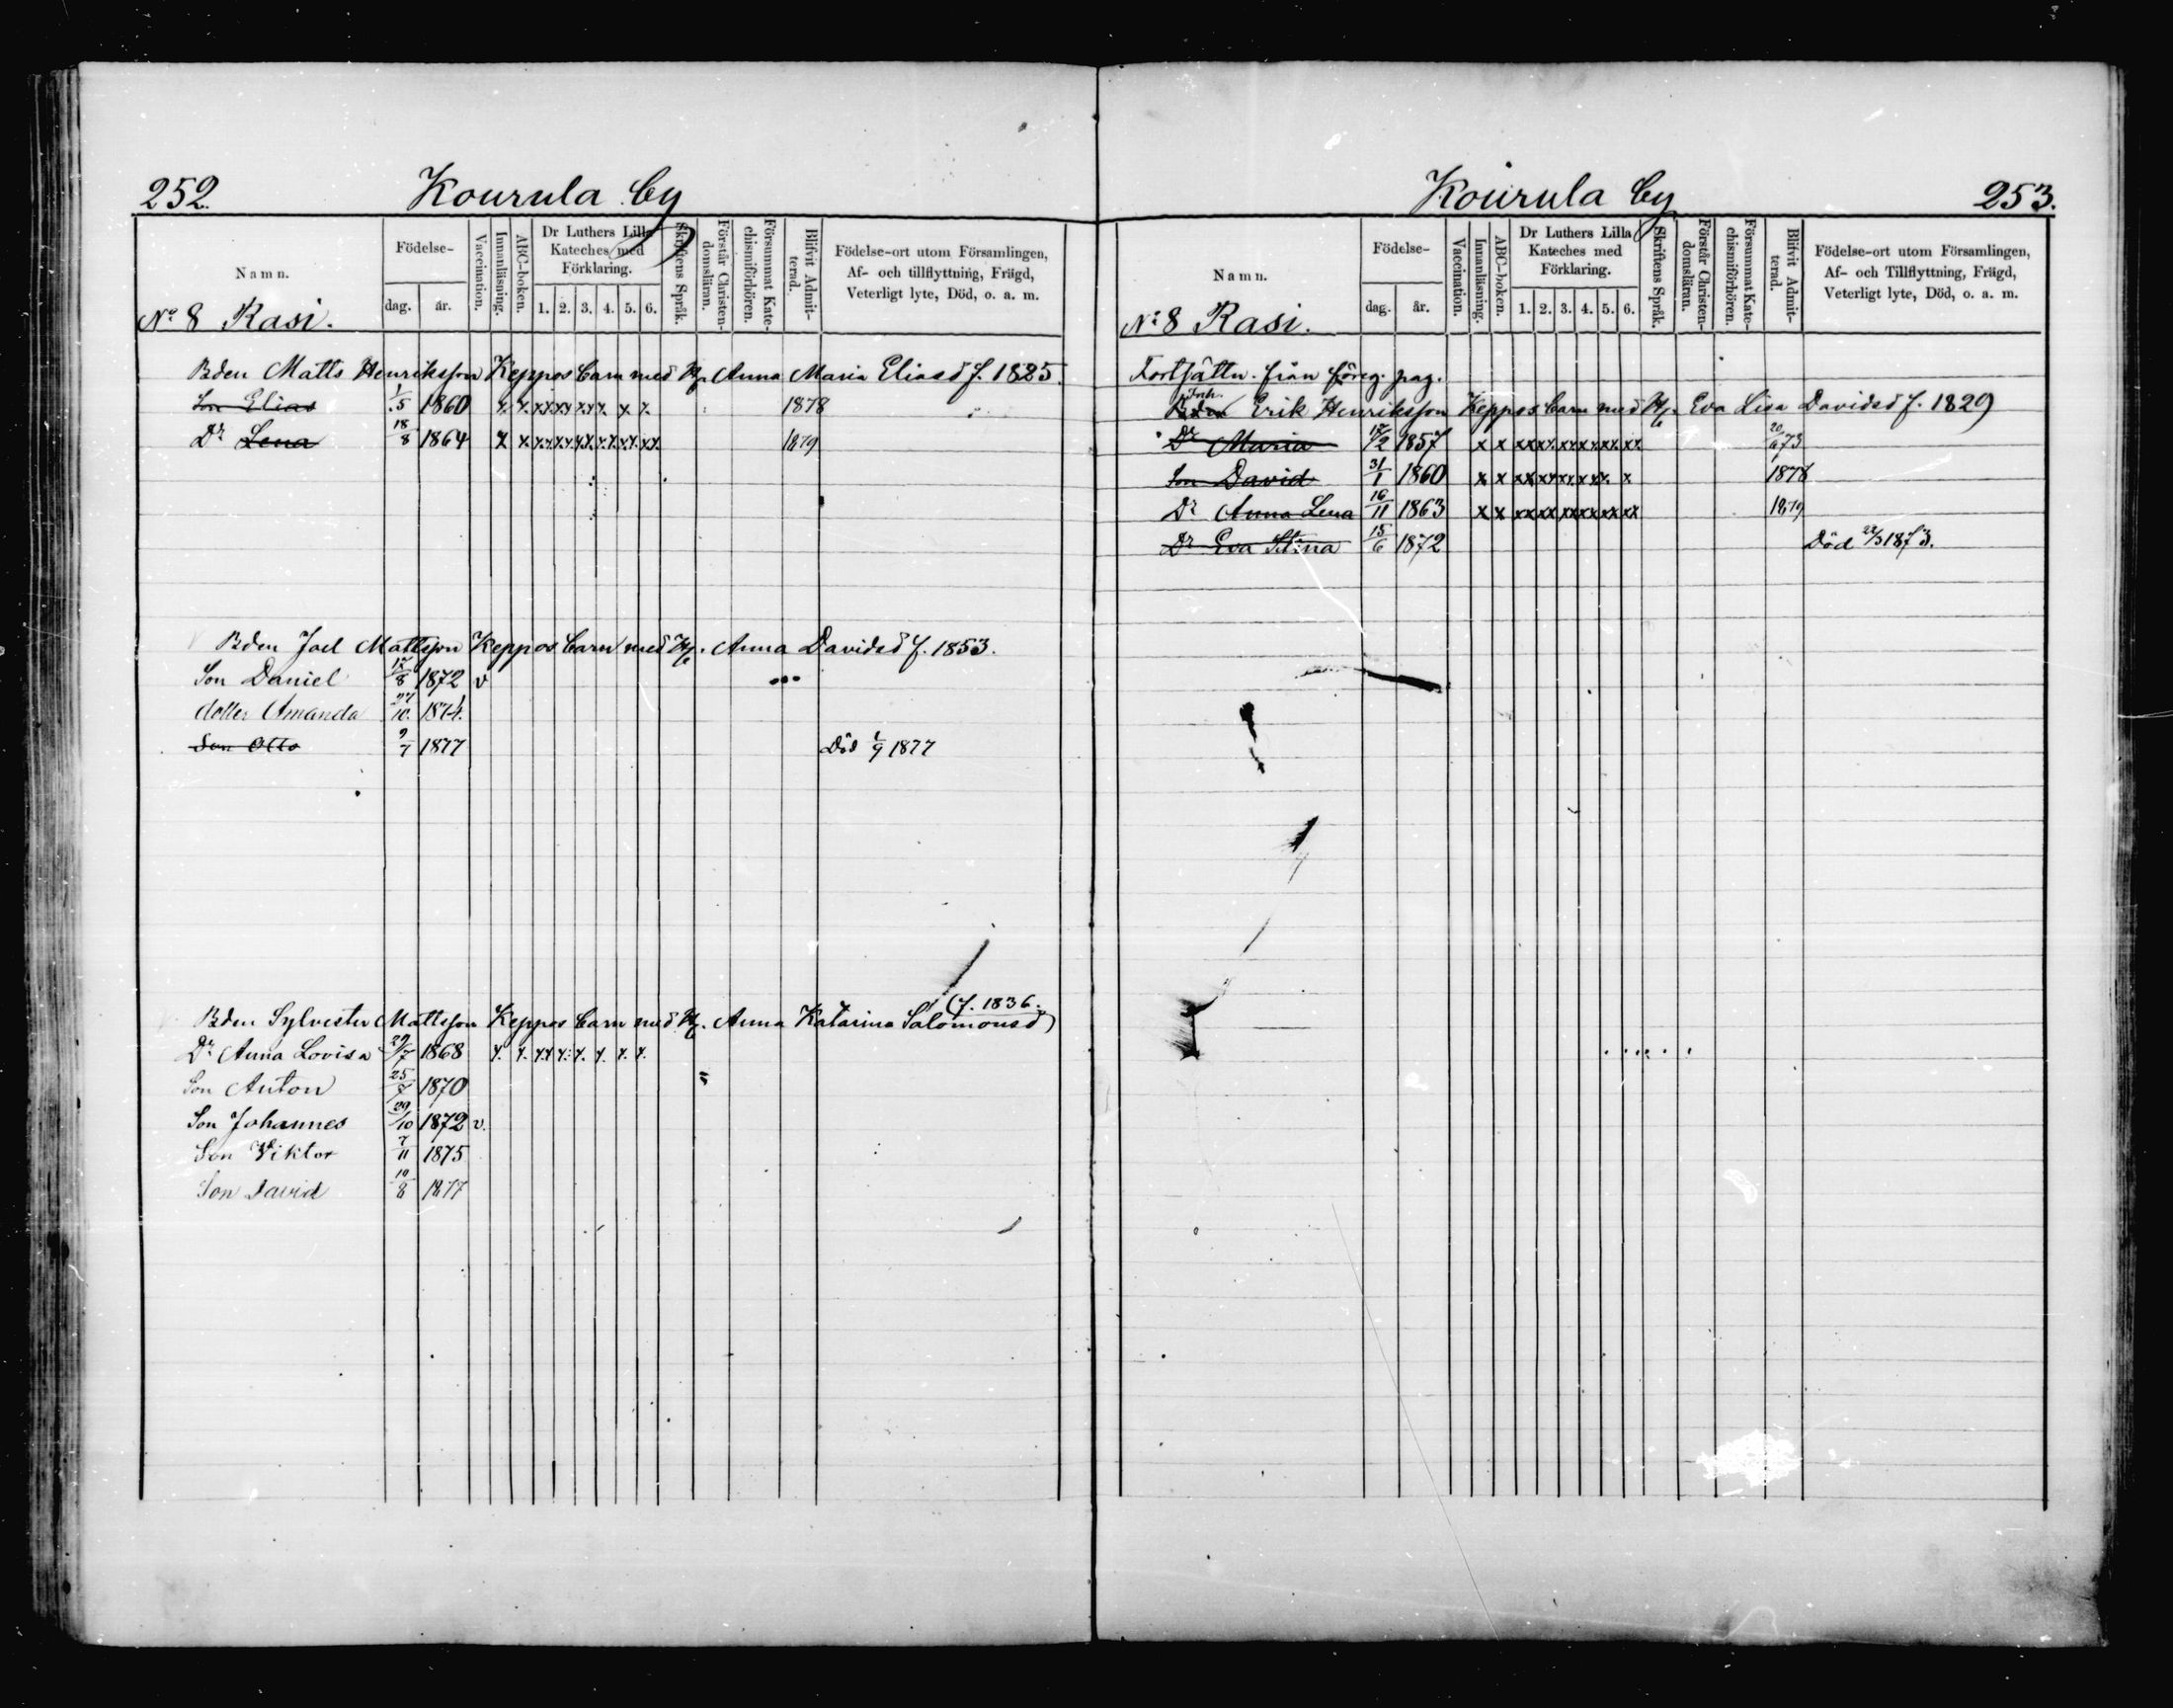 252.
Kourula by
Namn.
Födelse-
dag.
år.
Vaccination.
Innanläsning.
ABC-boken.
Dr Luthers Lilla Kateches med Förklaring.
1. 2. 3. 4. 5. 6.
Skriftens Språk.
Förstår Christendomsläran.
Försummat Katechismiförhören.
Blifvit Admitterad.
Födelse-ort utom Församlingen,
Af- och tillflyttning, Frägd,
Veterligt lyte, Död, o. a. m.
No 8 Rasi.
Bden Matts Henriksson Keppos barn med H. Anna Maria Eliasd f. 1825.
Son Elias 1/5 1860 x x xx xx xx x x x 1878
Dr Lena 18/8 1864 x x xx xx xx xx xx xx 1879
Bden Joel Mattsson Keppos barn med H. Anna Davidsd f. 1853.
Son Daniel 17/8 1872 v
dotter Amanda 27/10 1874.
Son Otto 9/7 1877 Död 1/9 1877
(f. 1836.
Bden Sylvester Mattsson Keppos barn med H. Anna Katarina Salomonsd)
Dr Anna Lovisa 29/7 1868 x x xx x x x x x
Son Anton 25/8 1870
Son Johannes 29/10 1872 v.
Son Viktor 7/11 1875
Son David 10/8 1877
Kourula by
253.
Namn.
Födelse-
dag.
år.
Vaccination.
Innanläsning.
ABC-boken.
Dr Luthers Lilla Kateches med Förklaring.
1. 2. 3. 4. 5. 6.
Skriftens Språk.
Förstår Christendomsläran.
Försummat Katechismiförhören.
Blifvit Admitterad.
Födelse-ort utom Församlingen,
Af- och Tillflyttning, Frägd,
Veterligt lyte, Död, o. a. m.
No 8 Rasi.
Fortsättn. från föreg. pag.
Inh.
Bden Erik Henriksson Keppos barn med H. Eva Lisa Davidsd f. 1829
Dr Maria 17/2 1857 x x xx xx xx xx xx xx 20/6 73
Son David 31/1 1860 x x xx xx xx xx x x 1878
Dr Anna Lena 16/11 1863 x x xx xx xx xx xx xx 1879
Dr Eva Stina 15/6 1872 Död 22/3 1873.